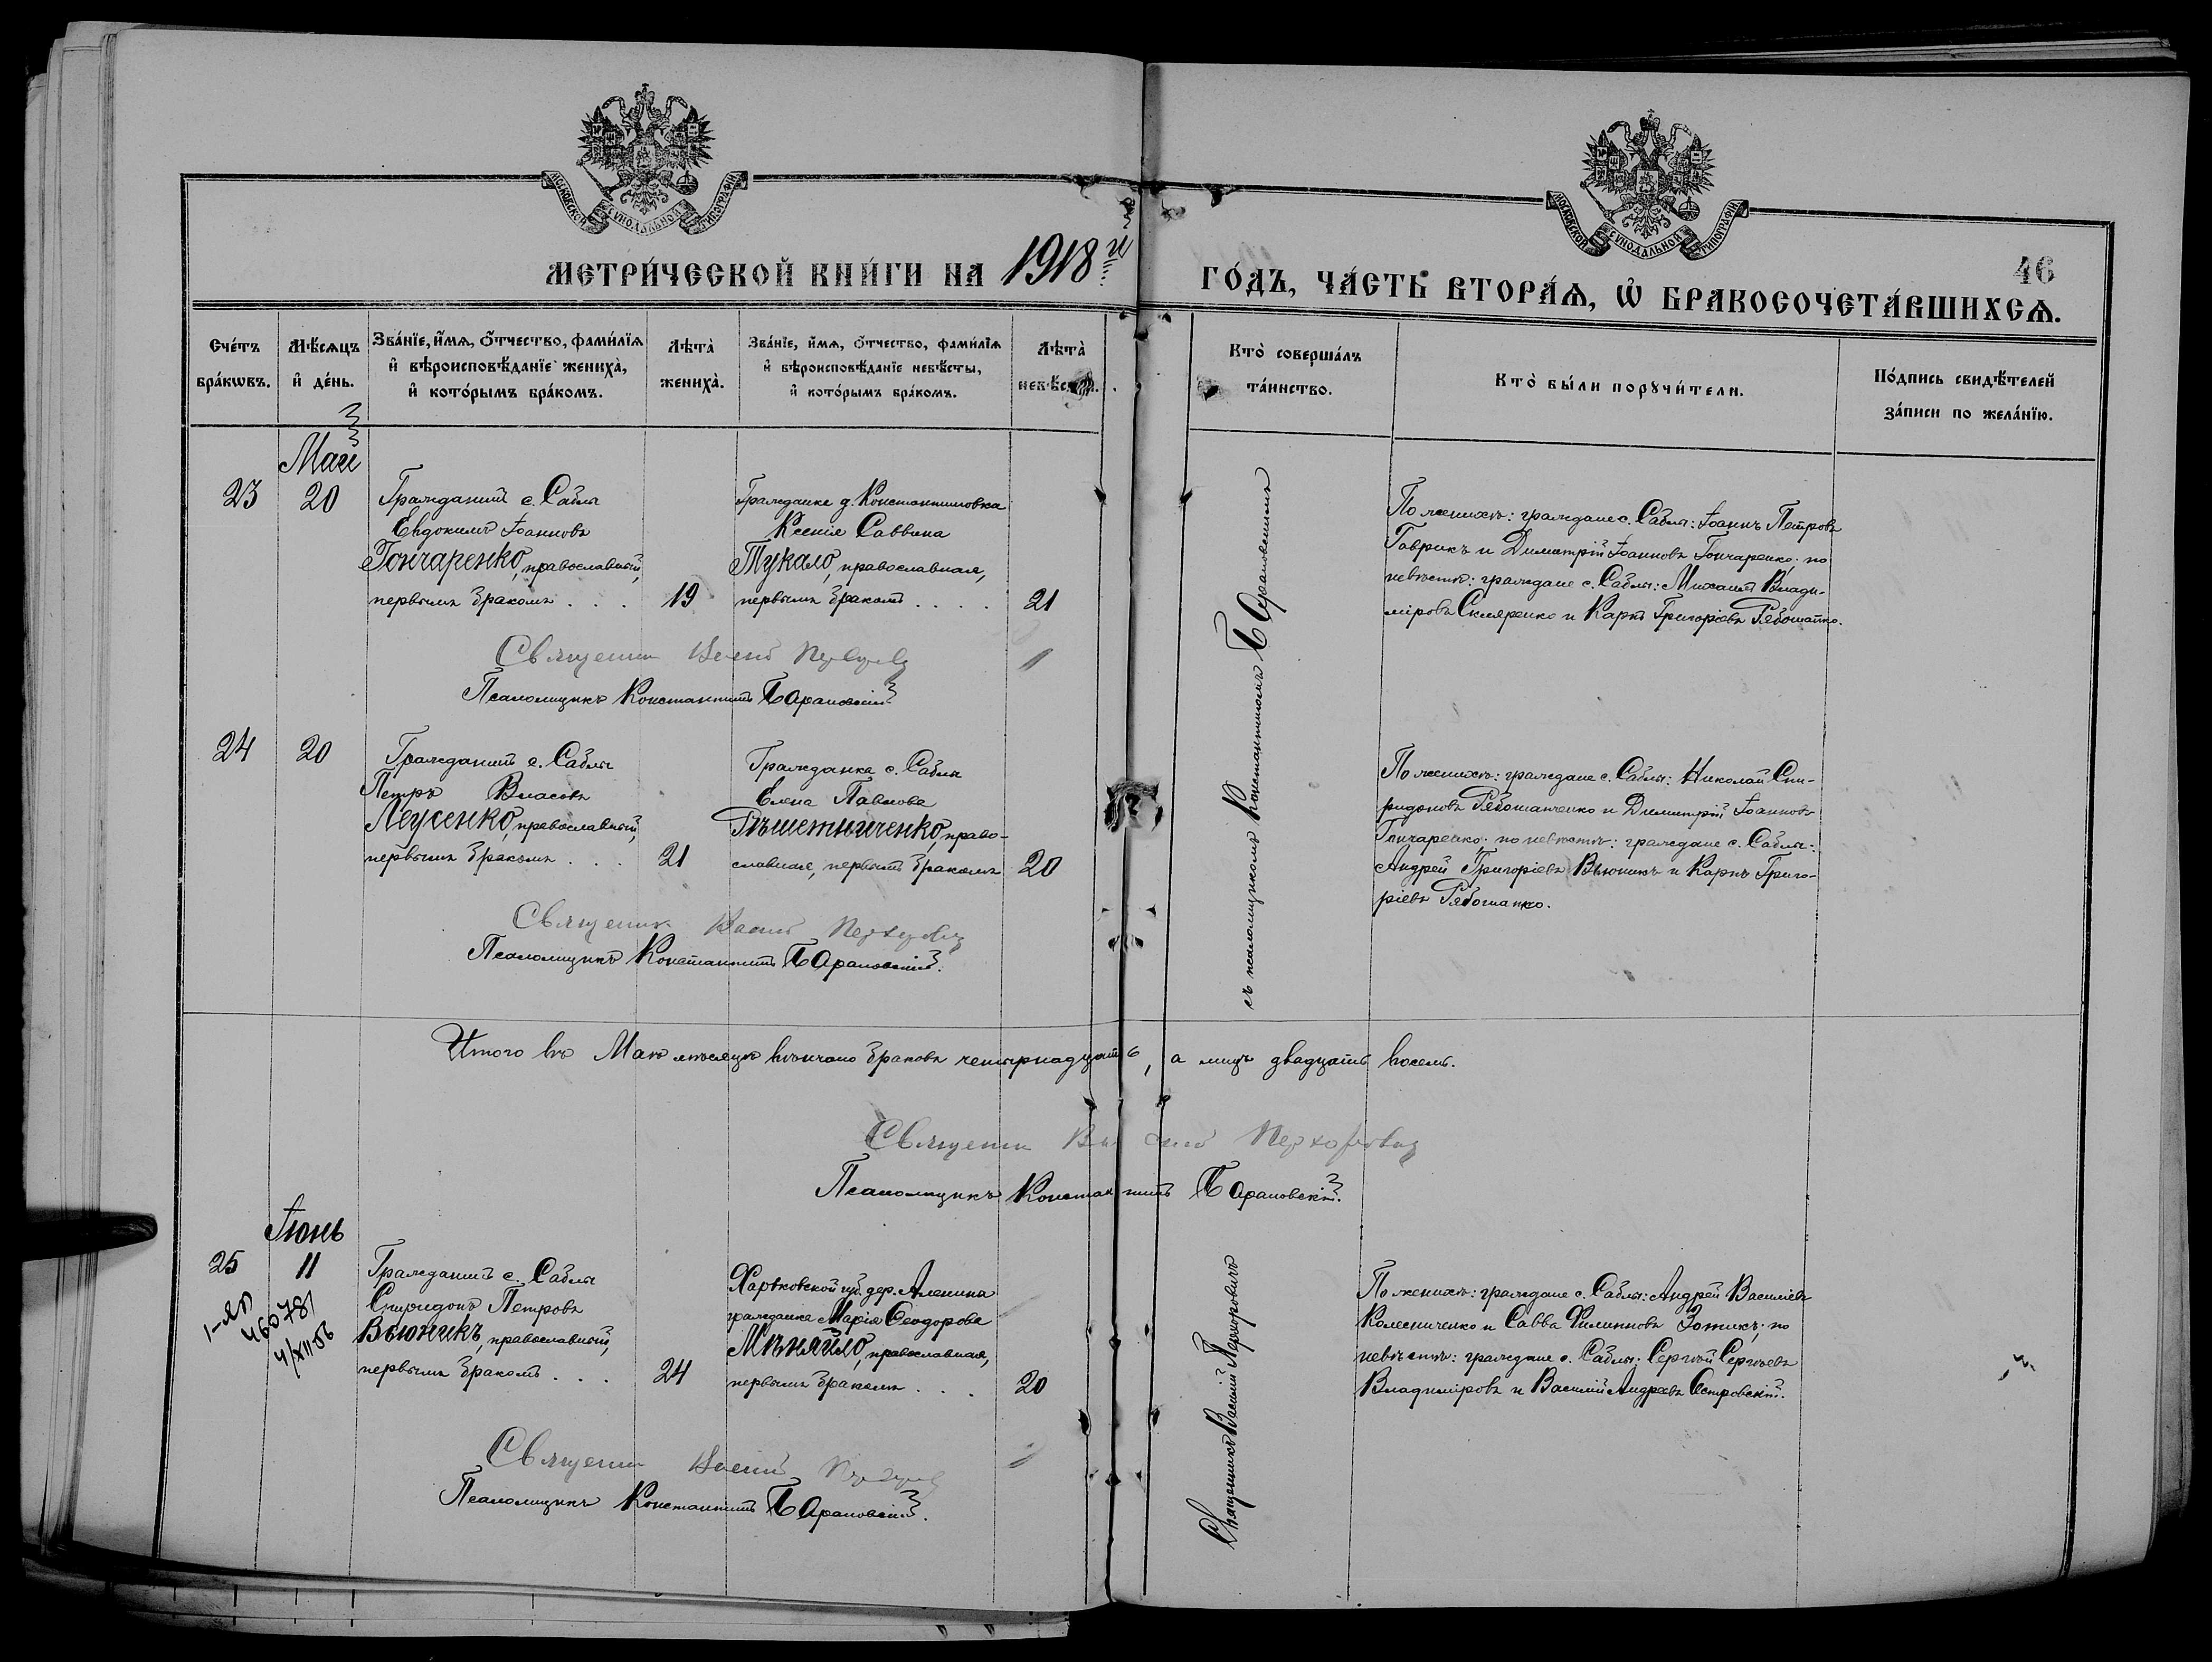 МОСКОВСКОЙ СѴНОДАЛЬНОЙ ТИПОГРАФІИ
МОСКОВСКОЙ СѴНОДАЛЬНОЙ ТИПОГРАФІИ
МЕТРИ́ЧЕСКОЙ КНИ́ГИ НА 1918й ГО́ДЪ, ЧА́СТЬ ВТОРА́Ѧ, Ѽ БРАКОСОЧЕТА́ВШИХСѦ.
46
Сче́тъ
бра́кѡвъ.
Мѣ́сѧцъ
и҆ де́нь.
Зва́нїе, и҆́мѧ, ѻ҆́тчество, фами́лїѧ
и҆ вѣроисповѣ́данїе жениха̀,
и҆ кото́рымъ бра́комъ.
Лѣта̀
жениха̀.
Зва́нїе, и҆́мѧ, ѻ҆́тчество, фами́лїѧ
и҆ вѣроисповѣ́данїе невѣ́сты,
и҆ кото́рымъ бра́комъ.
Лѣта̀
невѣ́сты.
Кто̀ соверша́лъ
та́инство.
Кто̀ бы́ли порꙋчи́тели.
По́дпись свидѣ́телей
за́писи по жела́нїю.
Май
23
20
Гражданинъ с. Саблы
Евдокимъ Іоанновъ
Гончаренко, православный,
первымъ бракомъ . . .
19
Гражданка д. Константиновка
Ксенія Саввина
Тукало, православная,
первымъ бракомъ . . . .
21
По женихѣ: граждане с. Саблы: Іоаннъ Петровъ
Гаврикъ и Димитрій Іоанновъ Гончаренко; по
невѣстѣ: граждане с. Саблы: Михаилъ Влади-
міровъ Скляренко и Карпъ Григоріевъ Рябошапко.
Священник Васил
Псаломщикъ Константинъ Барановскій
24
20
Гражданинъ с. Саблы
Петръ Власовъ
Леусенко, православный,
первымъ бракомъ . . .
21
Гражданка с. Саблы
Елена Павлова
Рѣшетниченко, право-
славная, первымъ бракомъ
20
По женихѣ: граждане с. Саблы: Николай Спи-
ридоновъ Рябошапченко и Димитрій Іоанновъ
Гончаренко; по невѣстѣ: граждане с. Саблы:
Андрей Григоріевъ Вьюникъ и Карпъ Григо-
ріевъ Рябошапко.
Священник Васил
Псаломщикъ Константинъ Барановскій.
съ псаломщикомъ Константиномъ Барановскимъ
Итого въ Маѣ мѣсяцѣ вѣнчано браковъ четырнадцать, а лицъ двадцать восемь.
Священник
Псаломщикъ Константинъ Барановскій.
Іюнь
25
11
1-яр
460781
4/XII 56
Гражданинъ с. Саблы
Спиридонъ Петровъ
Вьюникъ, православный,
первымъ бракомъ . . .
24
Харьковской губ. дер. Аленина
гражданка Марія Ѳеодорова
Мѣняйло, православная,
первымъ бракомъ . . .
20
Священникъ Василій Пархоровичъ
По женихѣ: граждане с. Саблы: Андрей Василіевъ
Колесниченко и Савва Филипповъ Зотикъ; по
невѣстѣ: граждане с. Саблы: Сергѣй Сергѣевъ
Владиміровъ и Василій Андреевъ Островскій.
Священник Васил
Псаломщикъ Константинъ Барановскій.